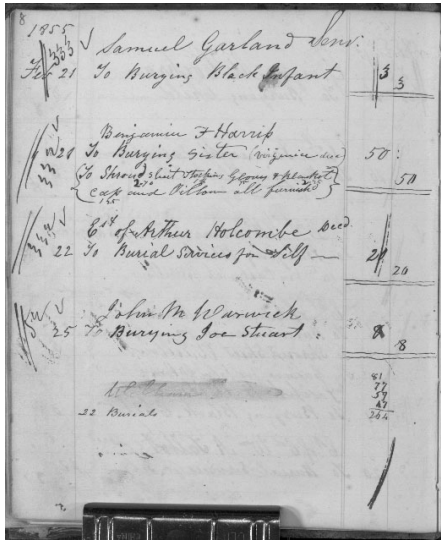 8
1855
Samuel Garland Senr.
Feb 21 To Burying Black Infant 3
3
Benjamin F Harris
21 To Burying Sister (Virginia dec) 50
To Shroud Gloves & blanket 50
cap and all furnished
Est of Arthur Holcombe Decd
22 To Burial Services for Self 20
20
John M Warwick
25 To Burying Joe Stuart 8
8
81
77
59
47
22 Burials 264